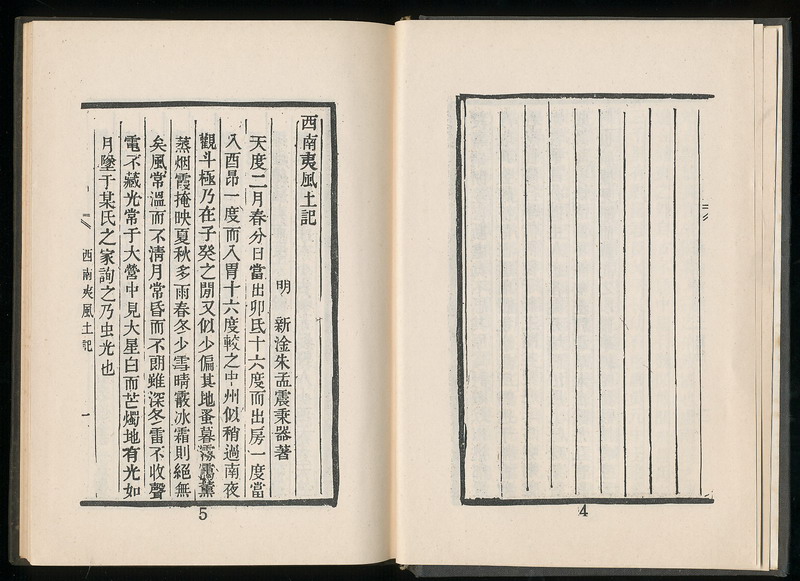 西南夷風土記
明 新淦朱孟震秉器著
天度二月春分日當出卯氐十六度而出房一度當
入酉昴一度而入胃十六度較之中州似稍過南夜
觀斗極乃在子癸之閒又似少偏其地蚤暮霧靄薰
蒸烟霞掩映夏秋多雨春冬少雪晴霰冰霜則絕無
矣風常溫而不清月常昏而不朗雖深冬雷不收聲
電不藏光常于大營中見大星白而芒燭地有光如
月墜于某氏之家詢之乃虫光也
西南夷風土記
一
4
5